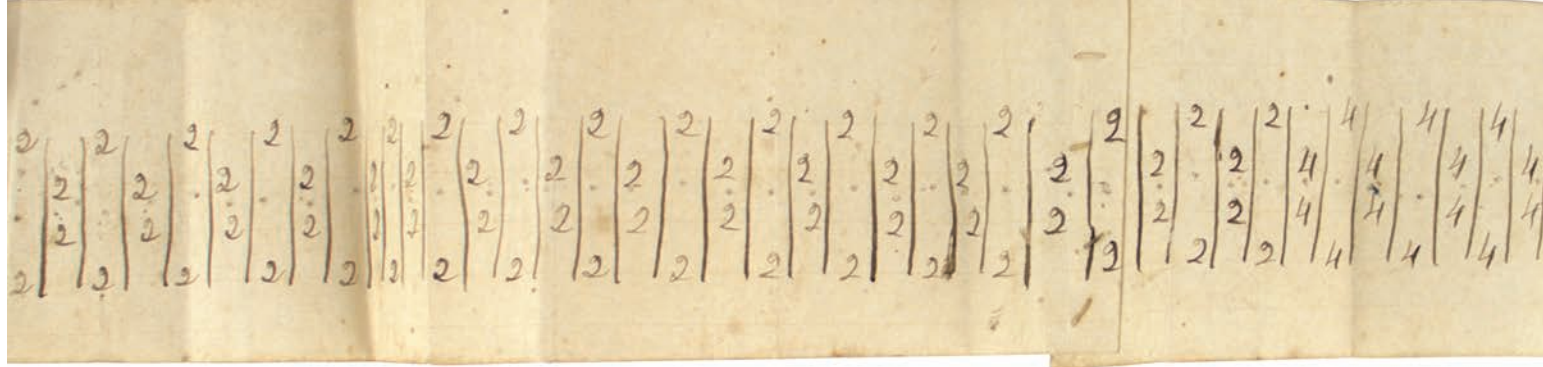 2 2 2 2 2 2 2 2 2 2 2 2 2 2 2 2 2 4 4 4
2 2 2 2 2 2 2 2 2 2 2 2 2 2 2 2 4 4 4 4
2 2 2 2 2 2 2 2 2 2 2 2 2 2 2 2 4 4 4 4
2 2 2 2 2 2 2 2 2 2 2 2 2 2 2 2 2 4 4 4